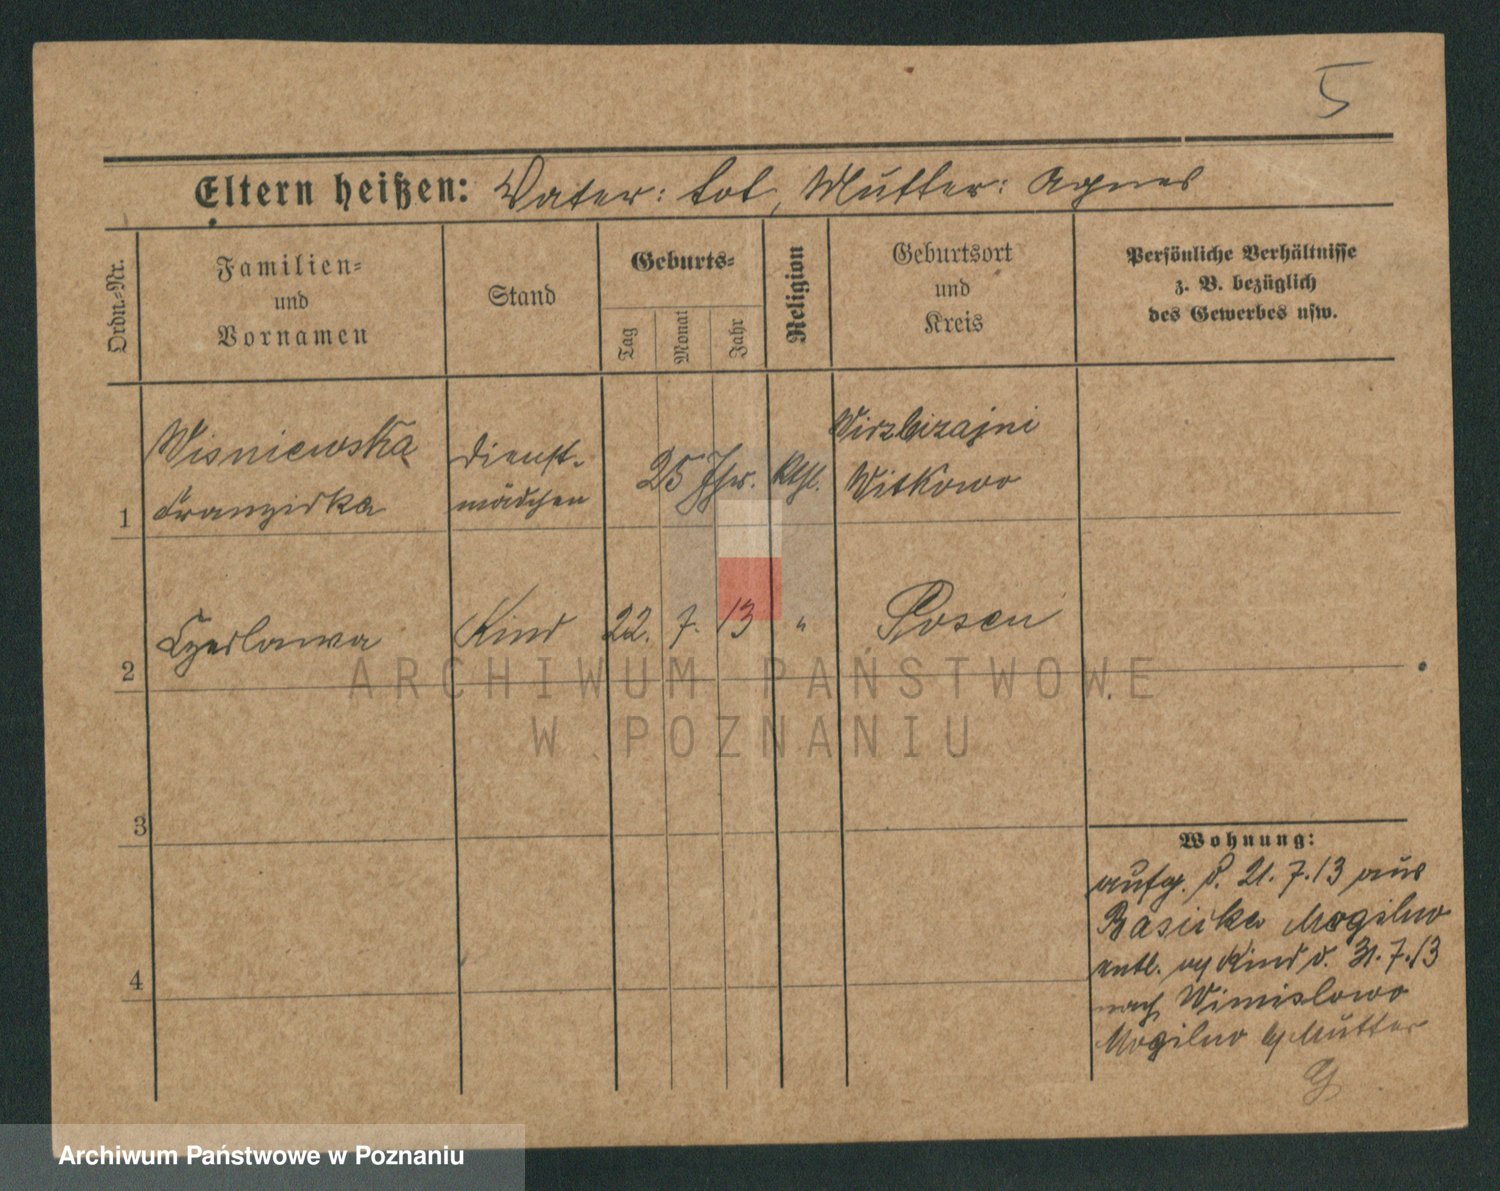 5
Eltern heißen: Vater: tot, Mutter: Agnes
Ordn.-Nr.
Familien-
und
Vornamen
Stand
Geburts-
Tag
Monat
Jahr
Religion
Geburtsort
und
Kreis
Persönliche Verhältnisse
z. B. bezüglich
des Gewerbes usw.
1
Wisniewska
Franziska
Dienst-
mädchen
25 Jhr.
Kthl.
Wirzbizajni
Witkowo
2
Czeslawa
Kind
22. 7. 13
"
Posen
3
4
Wohnung:
aufg. d. 21. 7. 13 aus
Mogilno
entl. Kind d. 31. 7. 13
nach Wimislowo
Mogilno Mutter
ARCHIWUM PAŃSTWOWE
W POZNANIU
Archiwum Państwowe w Poznaniu